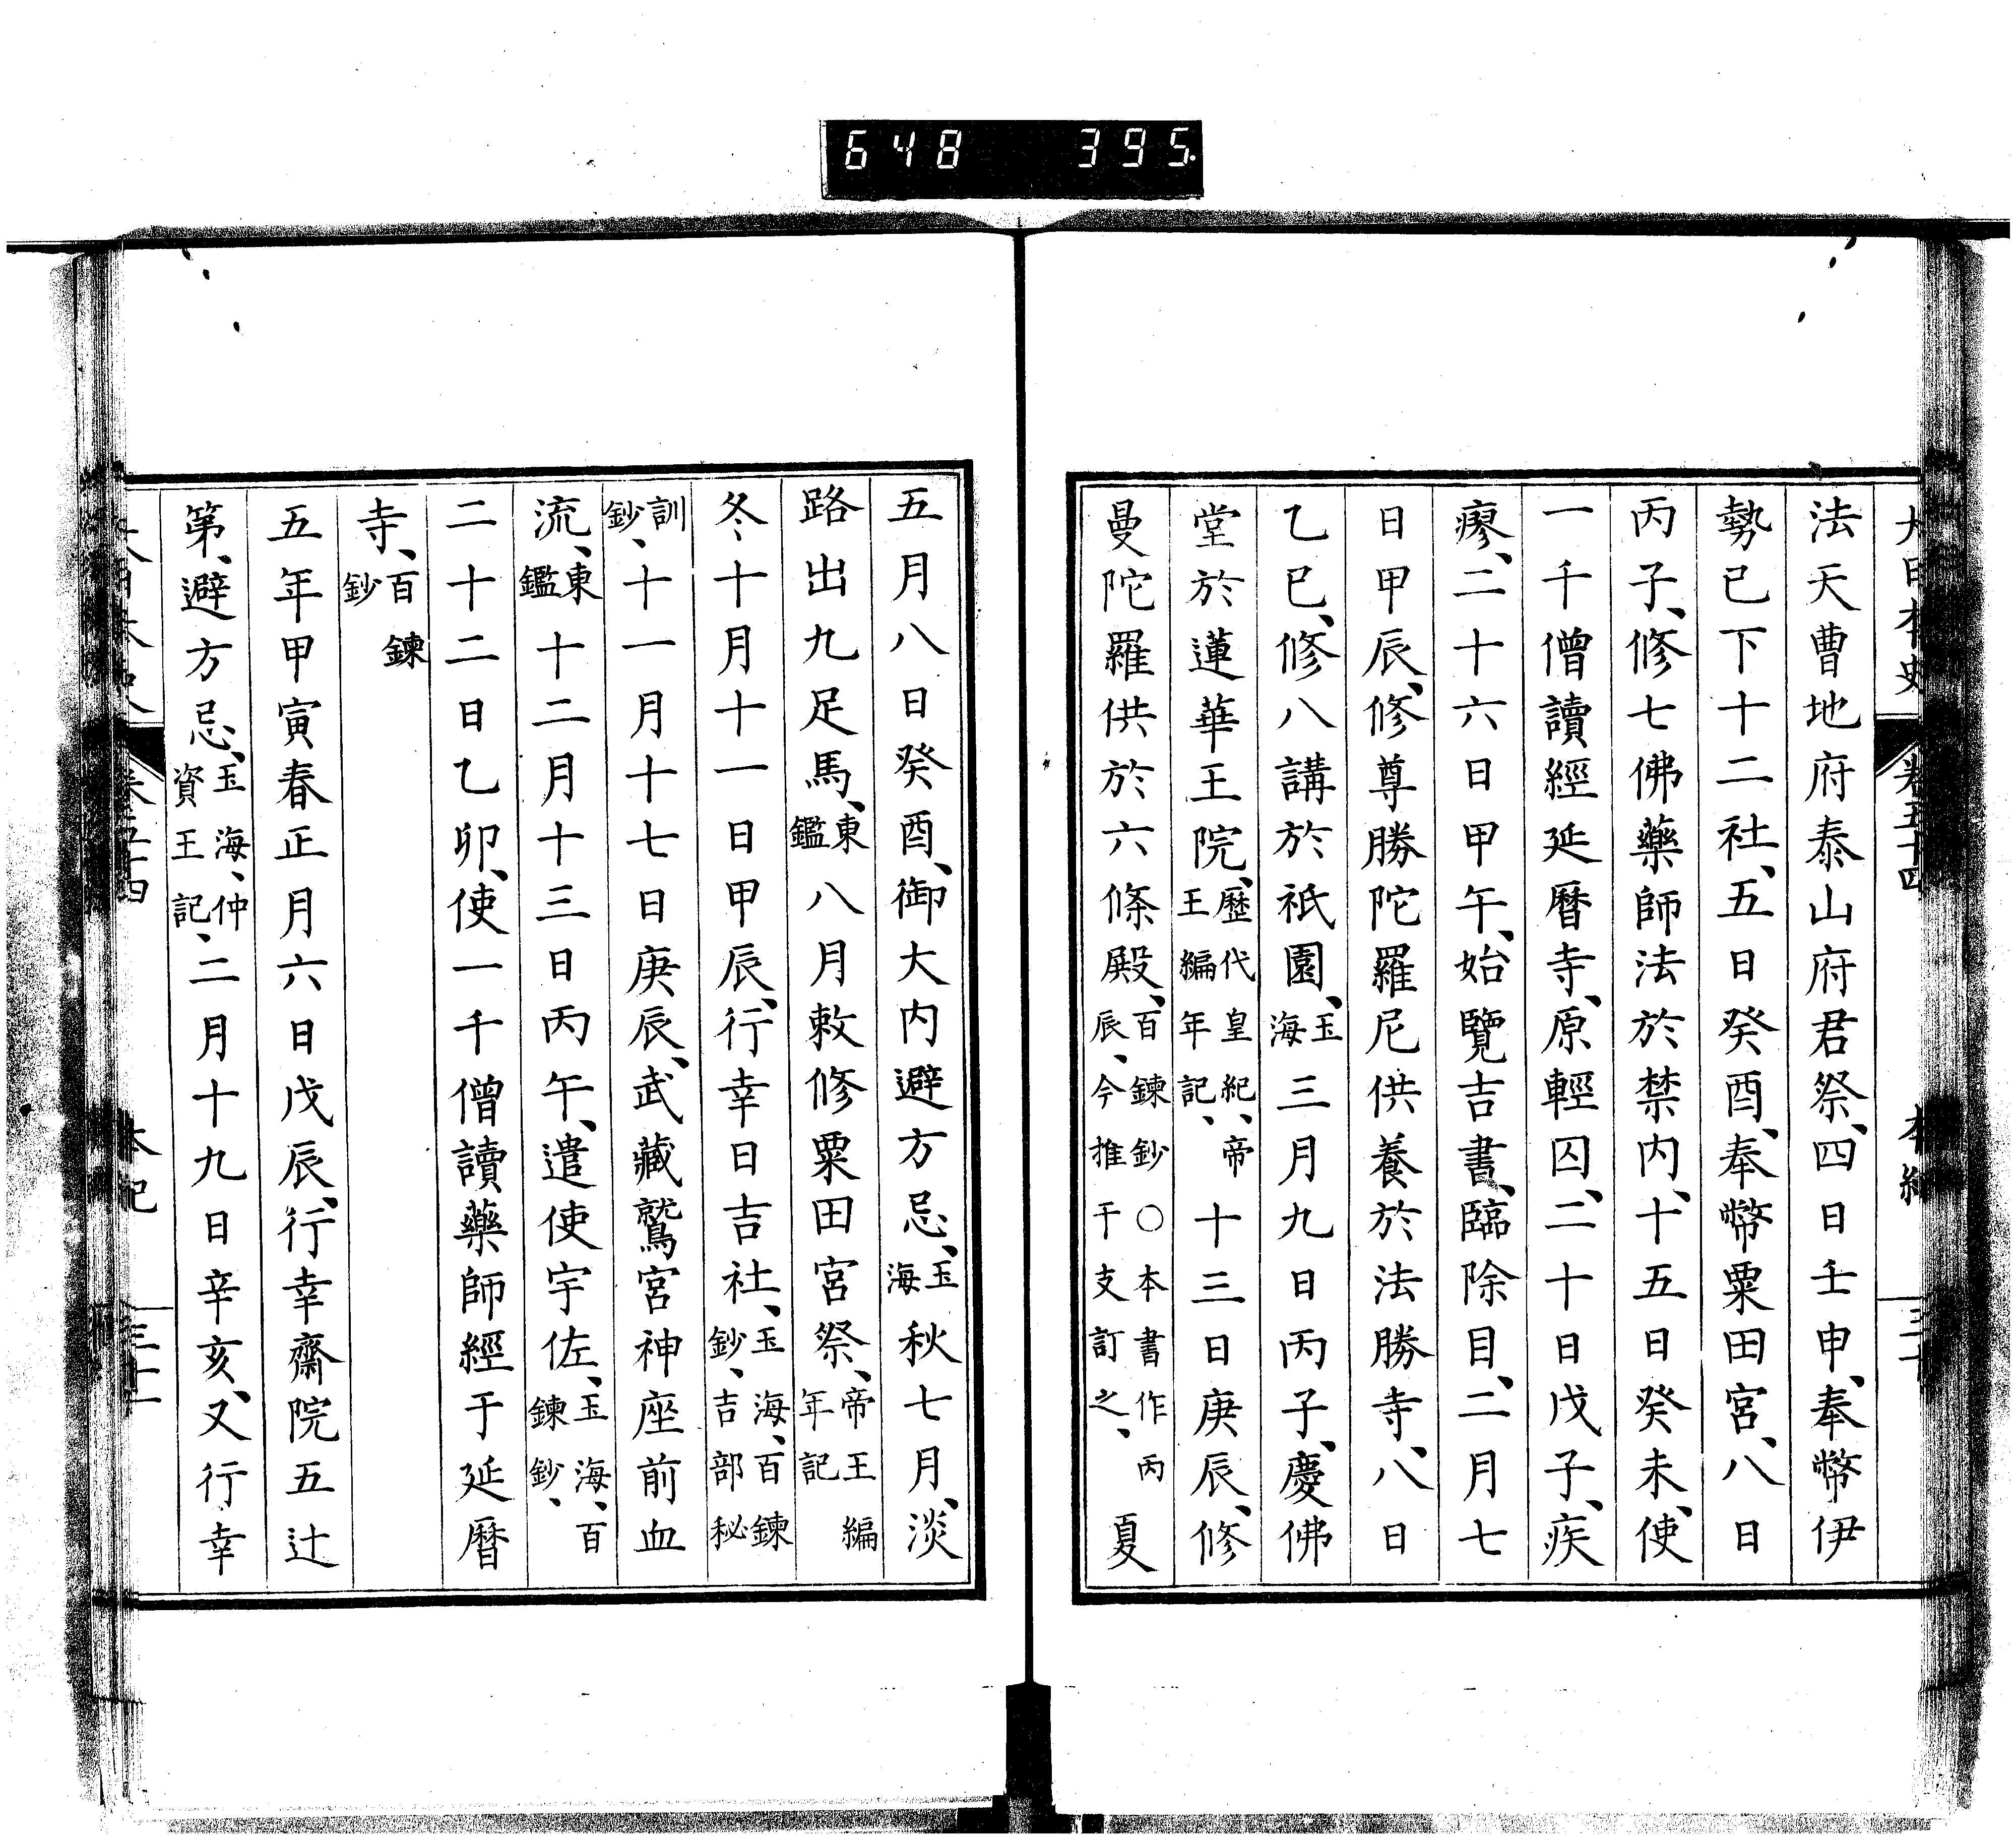 648 395.
大日本史 卷五十四 本紀
法天曹地府泰山府君祭、四日壬申、奉幣伊
勢已下十二社、五日癸酉、奉幣粟田宮、八日
丙子、修七佛藥師法於禁内、十五日癸未、使
一千僧讀經延曆寺、原輕囚、二十日戊子、疾
瘳、二十六日甲午、始覽吉書、臨除目、二月七
日甲辰、修尊勝陀羅尼供養於法勝寺、八日
乙巳、修八講於祇園、玉海三月九日丙子、慶佛
堂於蓮華王院、歷代皇紀、帝王編年記、十三日庚辰、修
曼陀羅供於六條殿、百鍊鈔〇本書作丙辰、今推干支訂之、夏
五月八日癸酉、御大内避方忌、玉海秋七月、淡
路出九足馬、東鑑八月敕修粟田宮祭、帝王編年記
冬、十月十一日甲辰、行幸日吉社、玉海、百鍊鈔、吉部秘
訓鈔、十一月十七日庚辰、武藏鷲宮神座前血
流、東鑑十二月十三日丙午、遣使宇佐、玉海、百鍊鈔、
二十二日乙卯、使一千僧讀藥師經于延曆
寺、百鍊鈔
五年甲寅春正月六日戊辰、行幸齋院五辻
第、避方忌、玉海、仲資王記、二月十九日辛亥、又行幸
大日本史 卷五十四 本紀